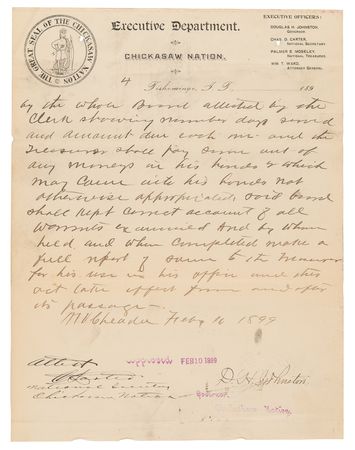 THE GREAT SEAL OF THE CHICKASAW NATION
Executive Department.
CHICKASAW NATION.
EXECUTIVE OFFICERS:
DOUGLAS H. JOHNSTON,
GOVERNOR.
CHAS. D. CARTER,
NATIONAL SECRETARY
PALMER S. MOSELEY,
NATIONAL TREASURER.
WM T. WARD,
ATTORNEY GENERAL.
4
Tishomingo, I. T. 189
by the whole Board attested by the
Clerk showing number days served
and amount due each one and the
Treasurer shall pay same out of
any moneys in his hands or which
may come into his hands not
otherwise appropriated said board
shall kept correct account of all
warrants examined and by whom
held and when completed make a
full report of same to the Treasurer
for his use in his office and this
act take effect from and after
its passage
Feby 10 1899
Attest
National Secretary
Chickasaw Nation
approved FEB 10 1899
D. H. Johnston
Governor
Chickasaw Nation.